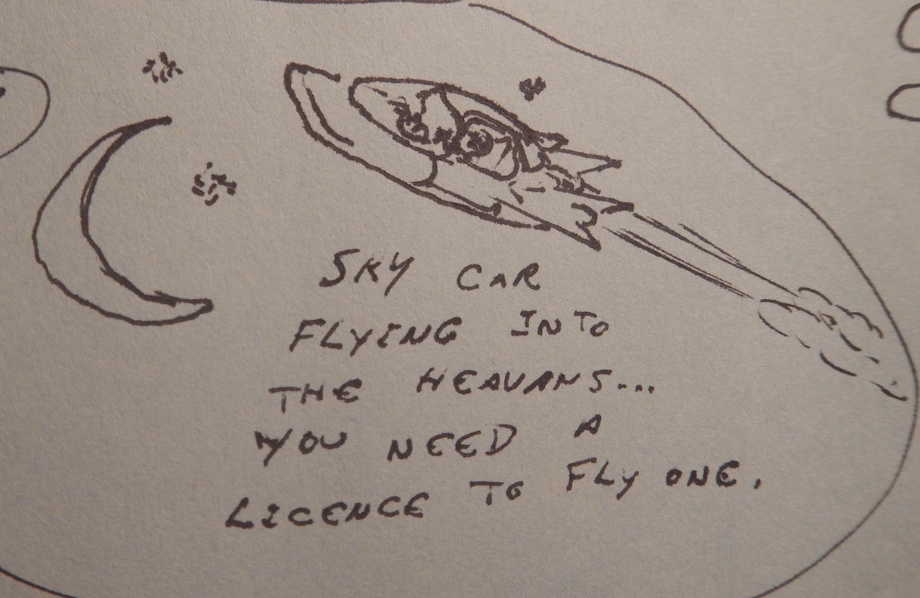 SKY CAR
FLYING INTO
THE HEAVANS...
YOU NEED A
LICENCE TO FLY ONE.